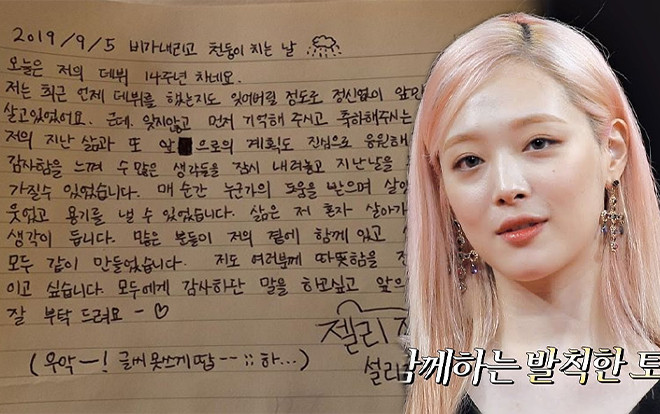 2019/9/5 비가내리고 천둥이 치는 날
오늘은 저의 데뷔 14주년 차네요.
저는 최근 언제 데뷔를 했는지도 잊어버릴 정도로 정신없이 앞만
살고있었어요. 근데. 잊지않고 먼저 기억해 주시고 축하해주시는
저의 지난 삶과 또 앞으로의 계획도 진심으로 응원해
감사함을 느껴 수많은 생각들을 잠시 내려놓고 지난날을
가질수 있었습니다. 매 순간 누군가의 도움을 받으며 살았
웃었고 용기를 낼 수 있었습니다. 삶은 저 혼자 살아가
생각이 듭니다. 많은 분들이 저의 곁에 함께 있고
모두 같이 만들었습니다. 저도 여러분께 따뜻함을 전
이고 싶습니다. 모두에게 감사하단 말을 하고싶고 앞으
잘 부탁 드려요 - ♡
젤리
설리
(우악ー! 글씨 못쓰게 땁 -- ;; 하...)
함께하는 발칙한 토